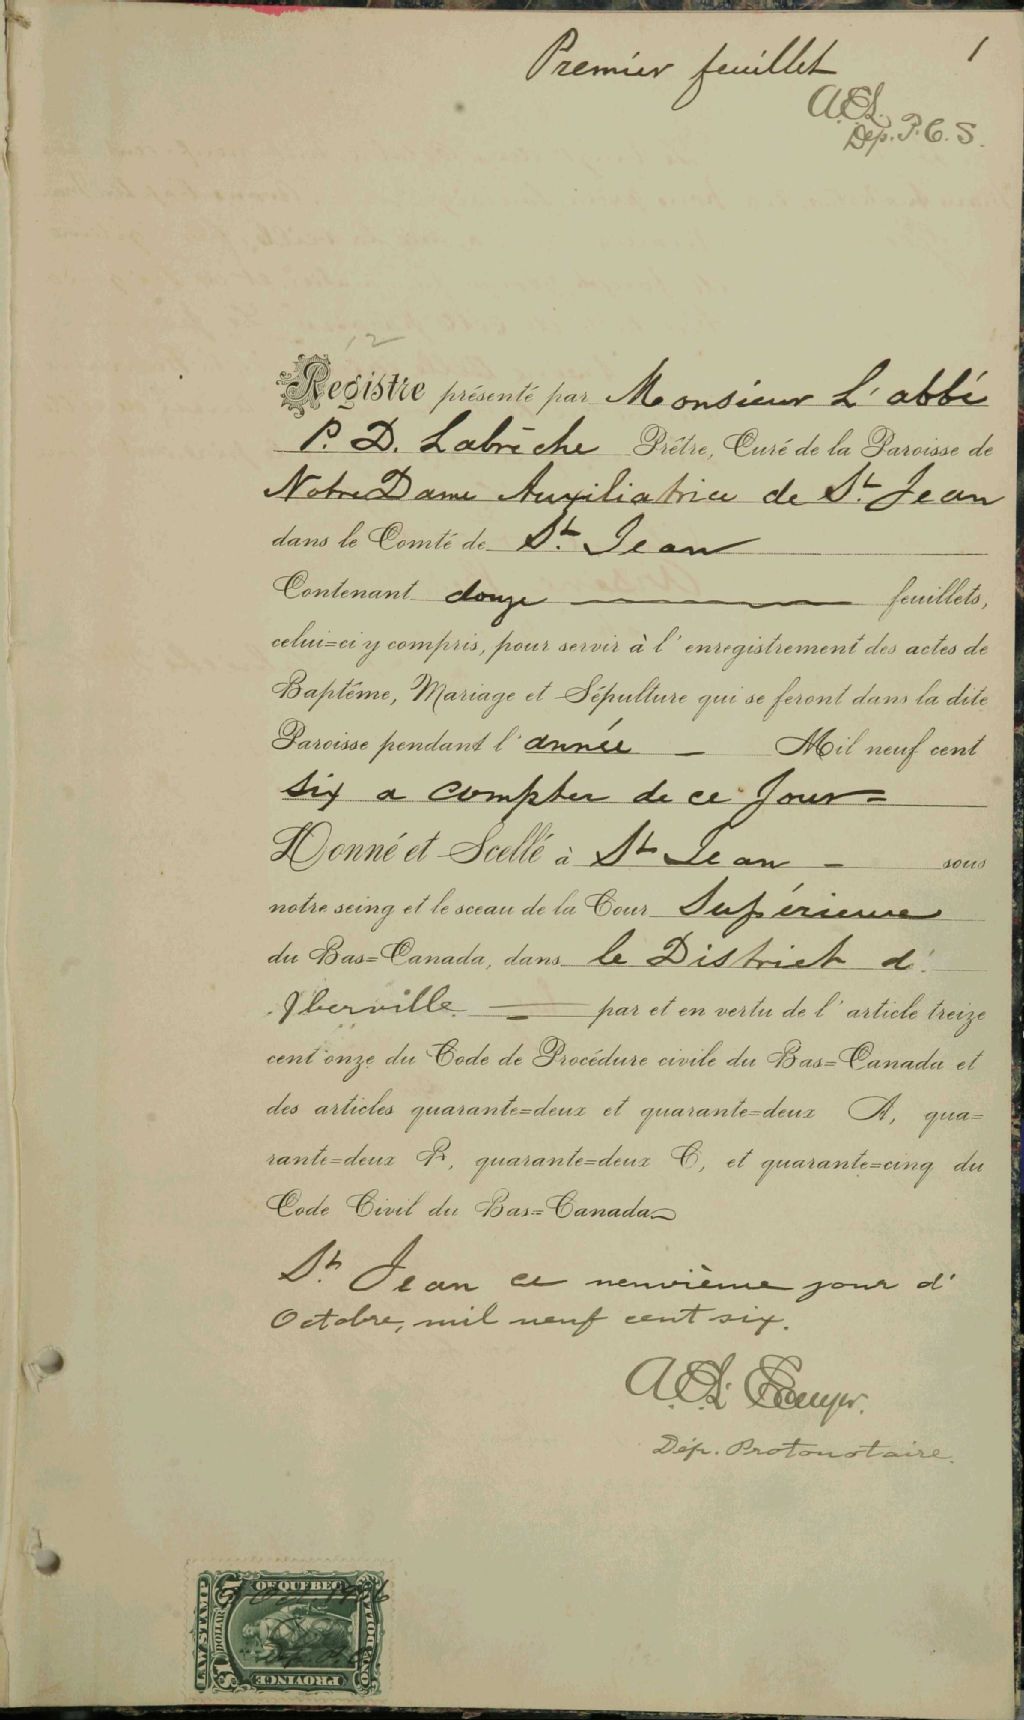 Premier feuillet
1
Dép. P. C. S.
12
Registre présenté par Monsieur L'abbé
P. D. Labrèche Prêtre, Curé de la Paroisse de
Notre Dame Auxiliatrice de St. Jean
dans le Comté de St. Jean
Contenant douze feuillets,
celui=ci y compris, pour servir à l'enregistrement des actes de
Baptême, Mariage et Sépulture qui se feront dans la dite
Paroisse pendant l'année — Mil neuf cent
six a compter de ce Jour=
Donné et Scellé à St Jean — sous
notre seing et le sceau de la Cour Supérieure
du Bas=Canada, dans le District d'
Iberville — par et en vertu de l'article treize
cent onze du Code de Procédure civile du Bas=Canada et
des articles quarante=deux et quarante=deux A, qua=
rante=deux B, quarante=deux C, et quarante=cinq du
Code Civil du Bas=Canada
St. Jean ce neuvième jour d'
Octobre, mil neuf cent six.
Dép. Protonotaire.
OF QUEBEC
LAW STAMP
$1 DOLLAR $1
PROVINCE